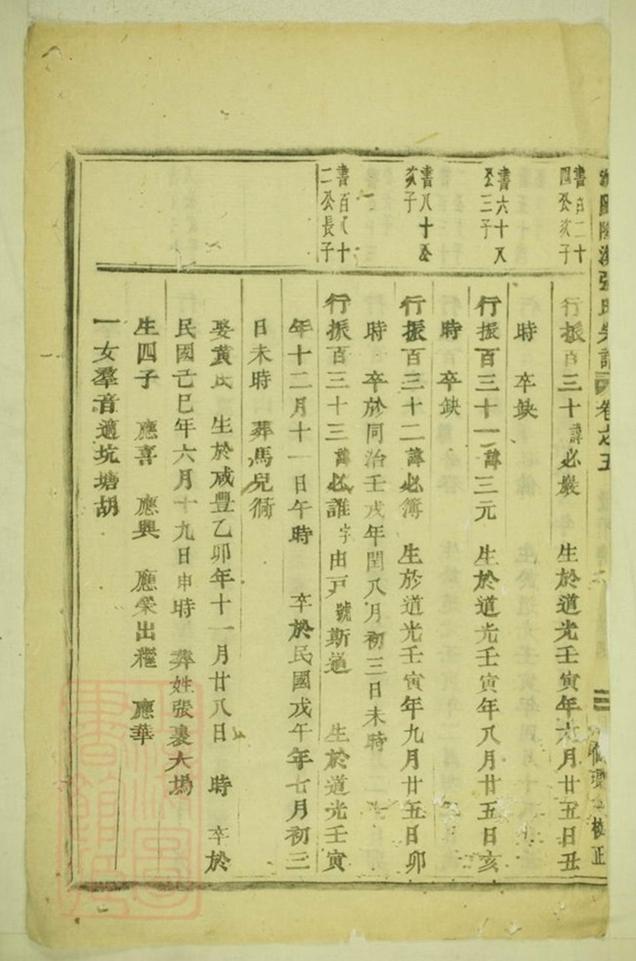 張氏宗譜 卷之五
校正
書百二十
四公次子
行振百三十諱必嚴 生於道光壬寅年六月廿五日丑
時 卒缺
書六十八
公三子
行振百三十一諱三元 生於道光壬寅年八月廿五日亥
時 卒缺
書八十公
次子
行振百三十二諱必簿 生於道光壬寅年九月廿五日卯
時 卒於同治壬戌年閏八月初三日未時
書百八十
二公長子
行振百三十三諱必誰字由戸號斯道 生於道光壬寅
年十二月十一日午時 卒於民國戊午年七月初三
日未時 葬馬兒衕
娶黃氏 生於咸豐乙卯年十一月廿八日 時 卒於
民國己巳年六月十九日申時 葬姓張裏大塢
生四子 應喜 應興 應榮出繼 應華
一女羣音適坑塘胡